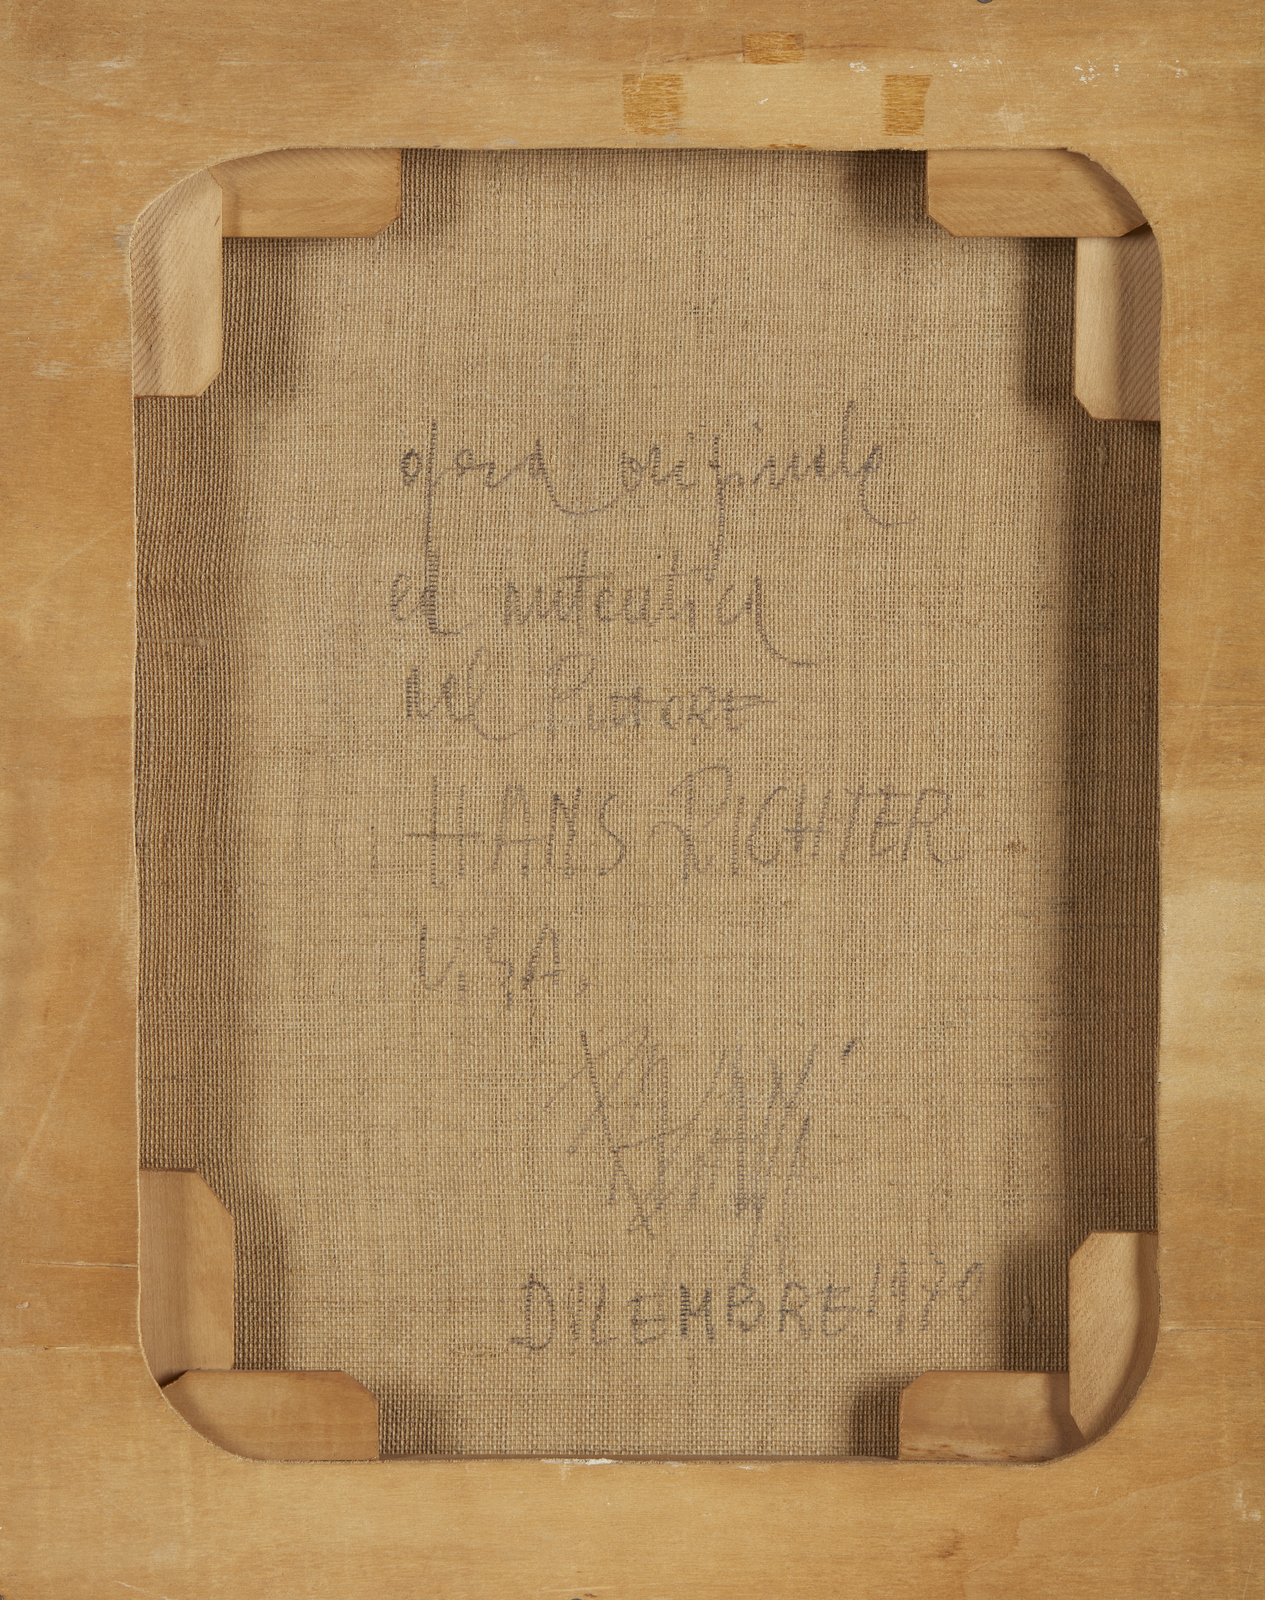 opera originale
ed autentica
del Pittore
HANS RICHTER
U.S.A.
DICEMBRE 1970